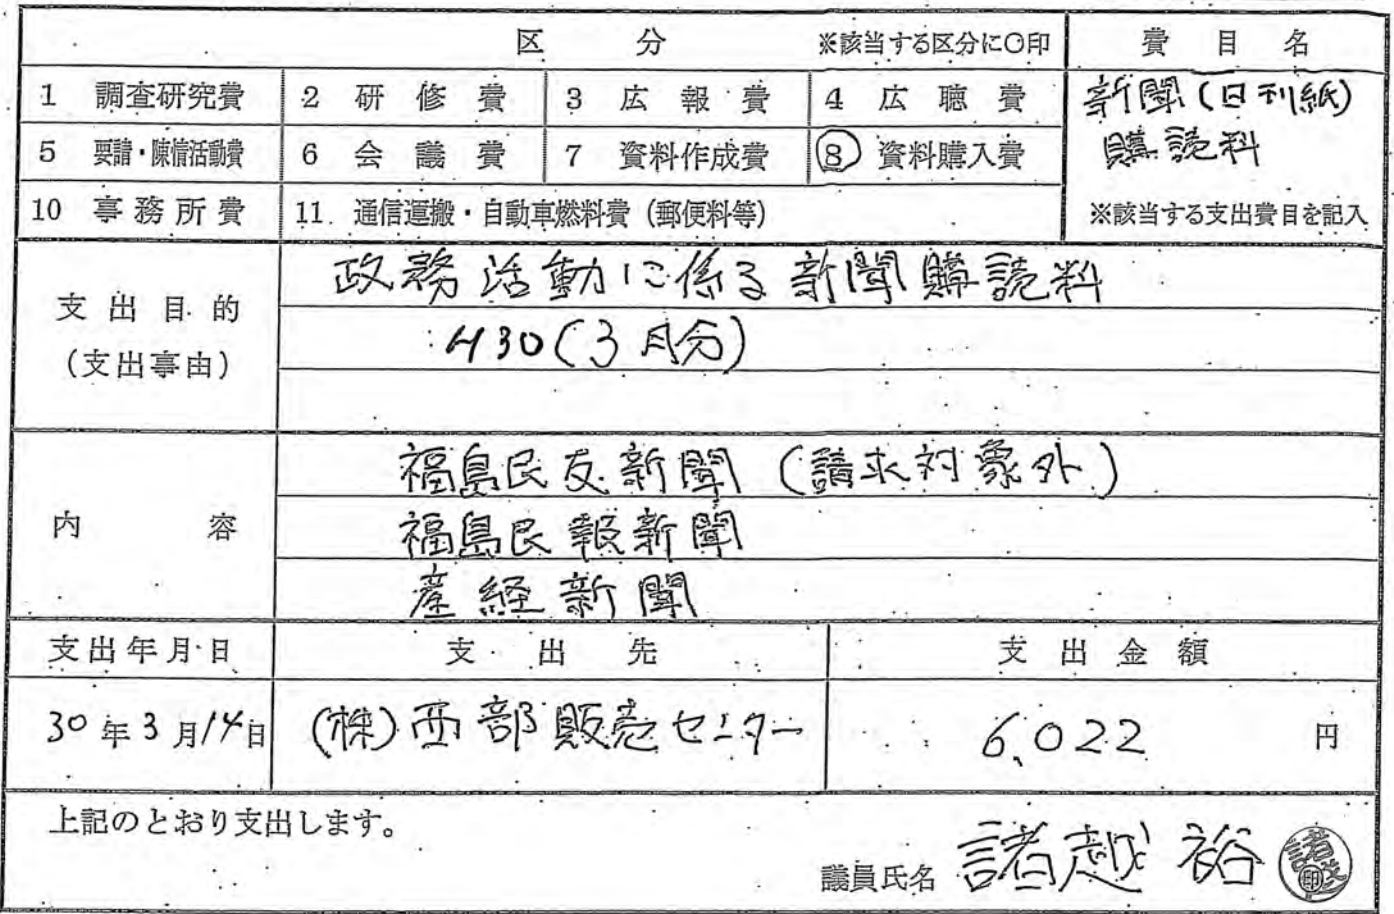 区 分 ※該当する区分に○印 費 目 名
1 調査研究費 2 研 修 費 3 広 報 費 4 広 聴 費 新聞(日刊紙)
5 要請・陳情活動費 6 会 議 費 7 資料作成費 ⑧ 資料購入費 購読料
10 事務所費 11. 通信運搬・自動車燃料費(郵便料等) ※該当する支出費目を記入
支出目的 政務活動に係る新聞購読料
(支出事由) H30(3月分)
福島民友新聞(請求対象外)
内 容 福島民報新聞
産経新聞
支出年月日 支 出 先 支 出 金 額
30年3月14日 (株)西部販売センター 6,022 円
上記のとおり支出します。
議員氏名 諸越 裕 印